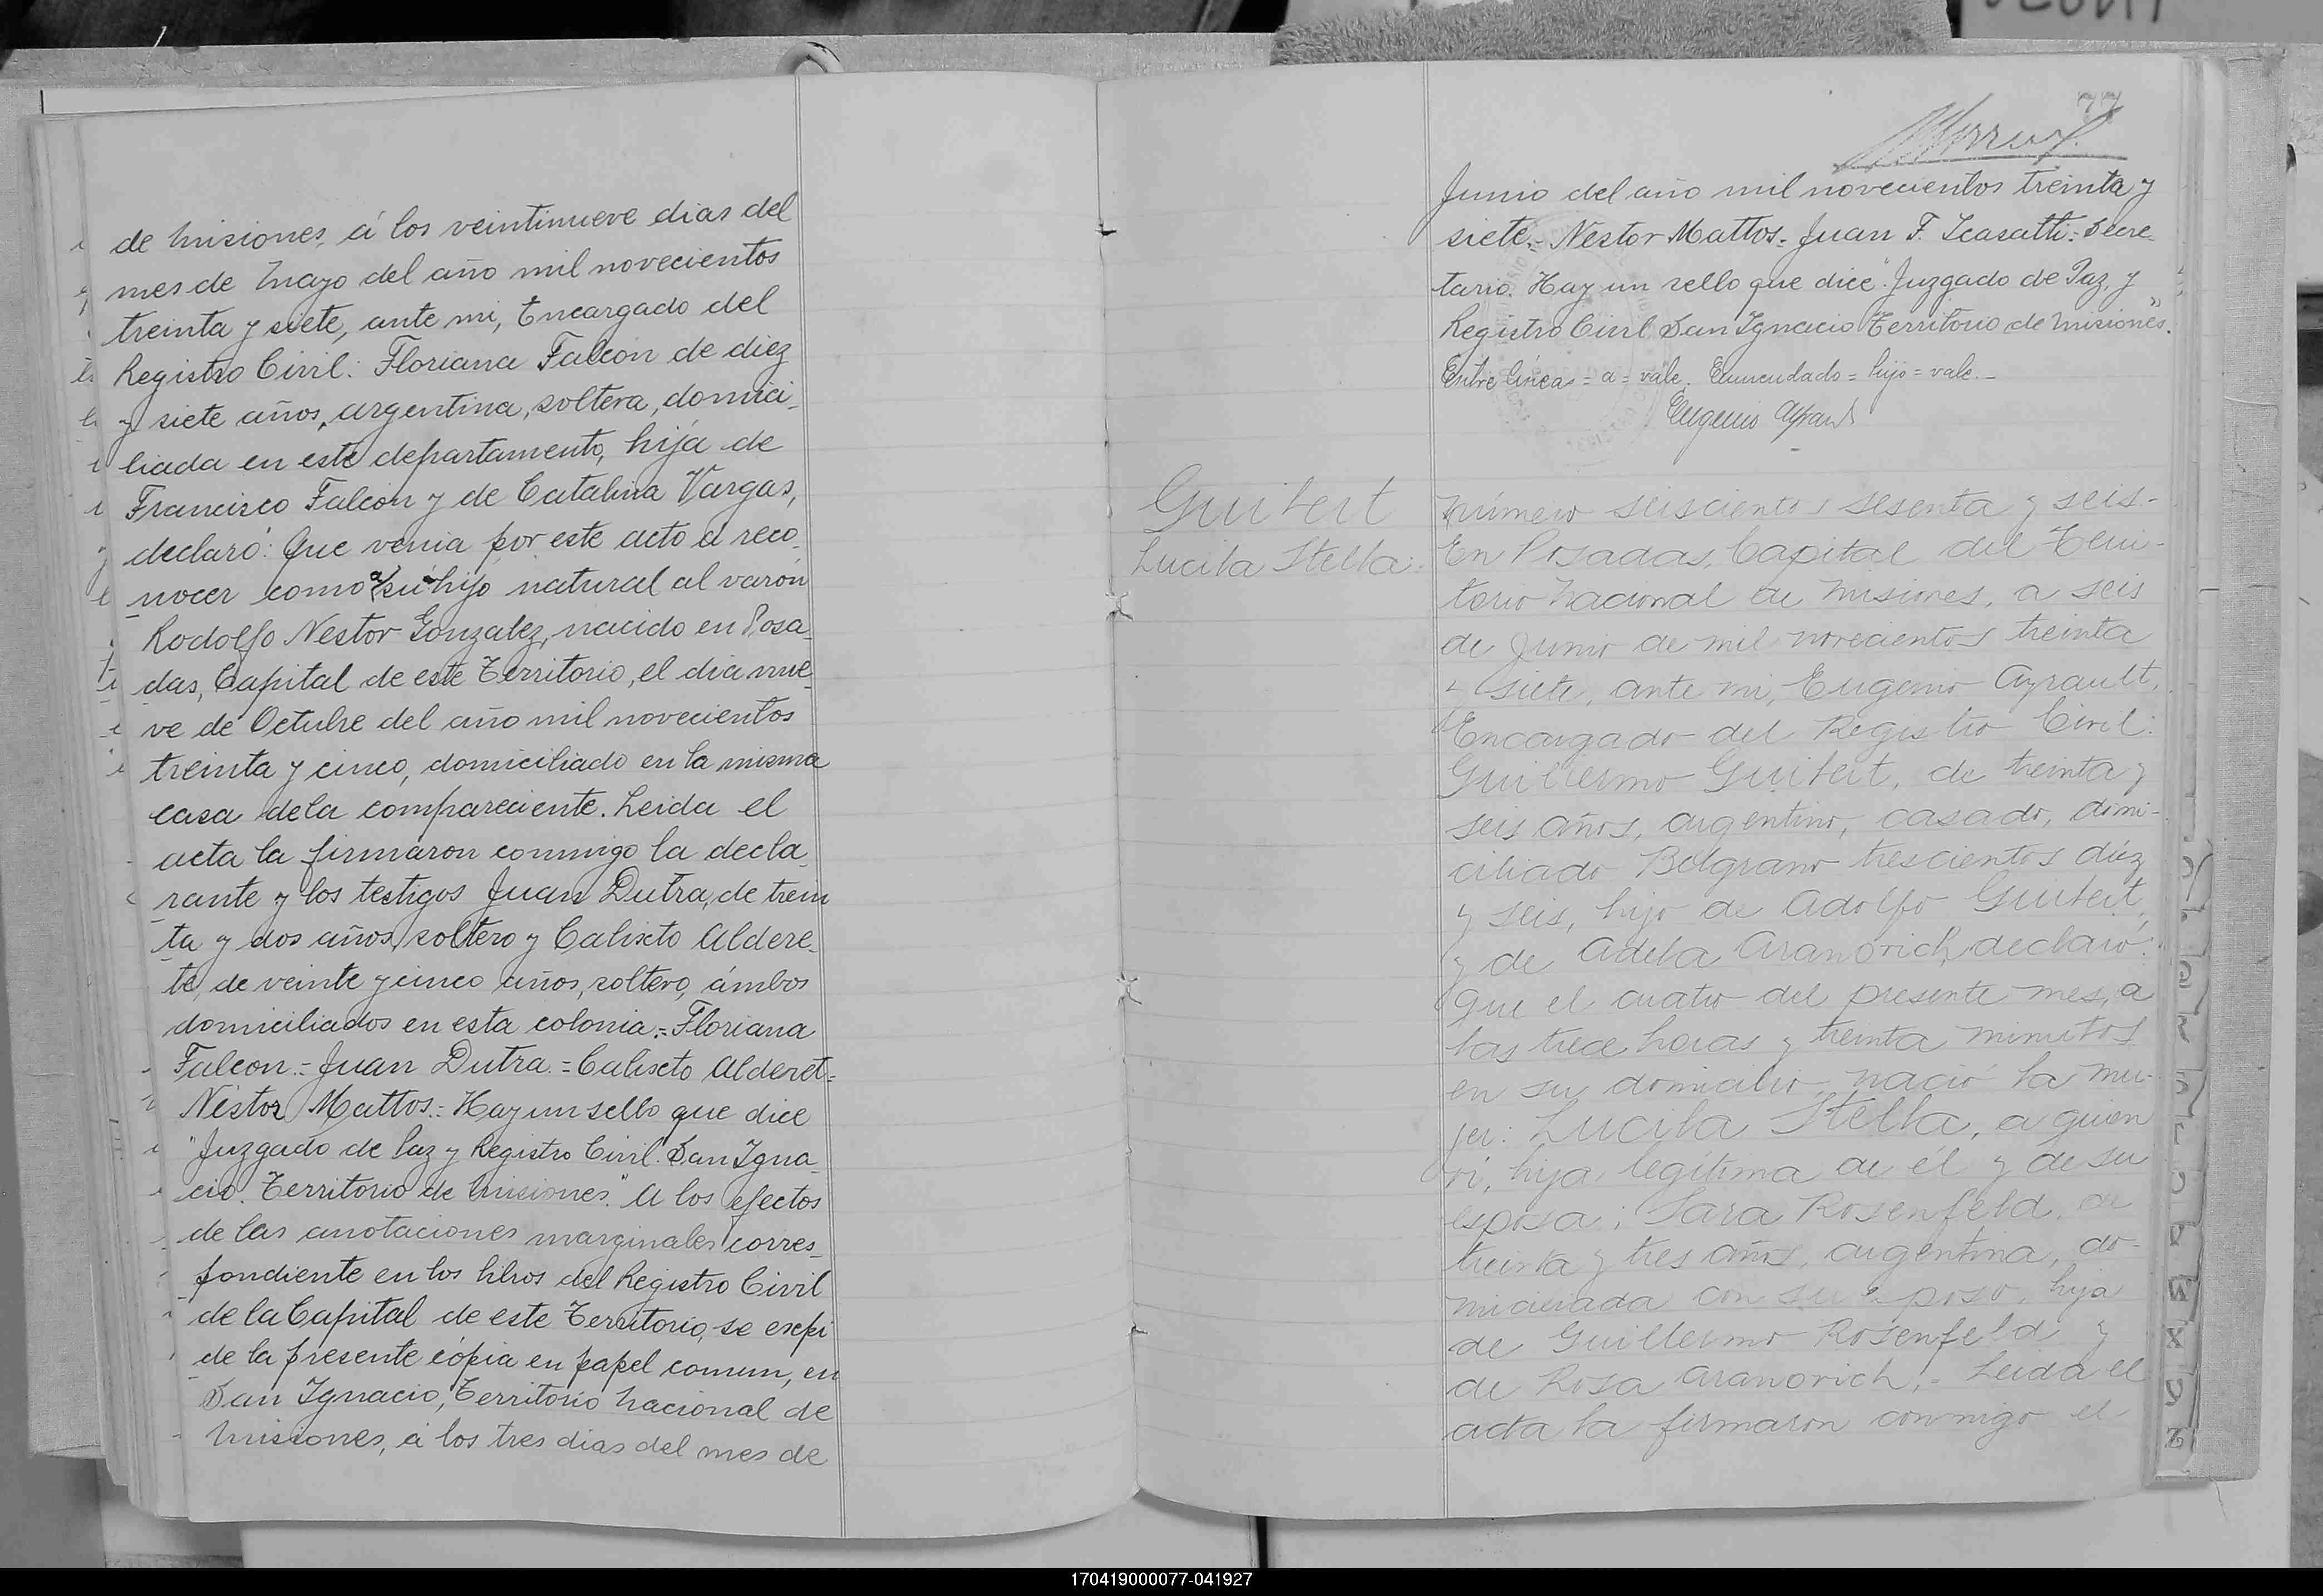 de Misiones, á los veintinueve dias del
mes de Mayo del año mil novecientos
treinta y siete, ante mi, Encargado del
Registro Civil: Floriana Falcon de diez
y siete años, argentina, soltera, domici_
liada en este departamento, hija de
Francisco Falcon y de Catalina Vargas,
declaró: Que venia por este acto a reco_
nocer como a su hijo natural al varón
Rodolfo Nestor Gonzalez, nacido en Posa_
das, Capital de este Territorio, el dia nue_
ve de Octubre del año mil novecientos
treinta y cinco, domiciliado en la misma
casa dela compareciente. Leida el
acta la firmaron conmigo la decla_
rante y los testigos Juan Dutra, de trein
ta y dos años, soltero y Calisto Aldere_
te, de veinte y cinco años, soltero, ámbos
domiciliados en esta colonia.= Floriana
Falcon.= Juan Dutra.= Calisto Alderet=
Néstor Mattos.= Hay un sello que dice
"Juzgado de Paz y Registro Civil. San Igna_
cio. Territorio de Misiones." A los efectos
de las anotaciones marginales corres_
pondiente en los libros del Registro Civil
de la Capital de este Territorio, se expi
de la presente cópia en papel comun, en
San Ignacio, Territorio Nacional de
Misiones, á los tres dias del mes de
77
Junio del año mil novecientos treinta y
siete.= Néstor Mattos.= Juan F. = Secre_
tario. Hay un sello que dice "Juzgado de Paz, y
Registro Civil San Ignacio Territorio de Misiones".
Entre líneas = a = vale. Enmendado = hijo = vale.-
Guibert
Lucila Stella.
Número seiscientos sesenta y seis.-
En Posadas, Capital del Terri-
torio Nacional de Misiones, a seis
de Junio de mil novecientos treinta
y siete, ante mi, Eugenio Ayrault,
Encargado del Registro Civil:
Guillermo Guibert, de treinta y
seis años, argentino, casado, domi-
ciliado Belgrano trescientos diez
y seis, hijo de Adolfo Guibert,
y de Adela Aranovich, declaró:
Que el cuatro del presente mes, a
las trece horas y treinta minutos
en su domicilio, nació la mu-
jer: Lucila Stella, a quien
vi, hija legítima de él y de su
esposa: Sara Rosenfeld, de
treinta y tres años, argentina, do-
miciliada con su esposo, hija
de Guillermo Rosenfeld y
de Rosa Aranovich.- Leida el
acta la firmaron conmigo el
170419000077-041927